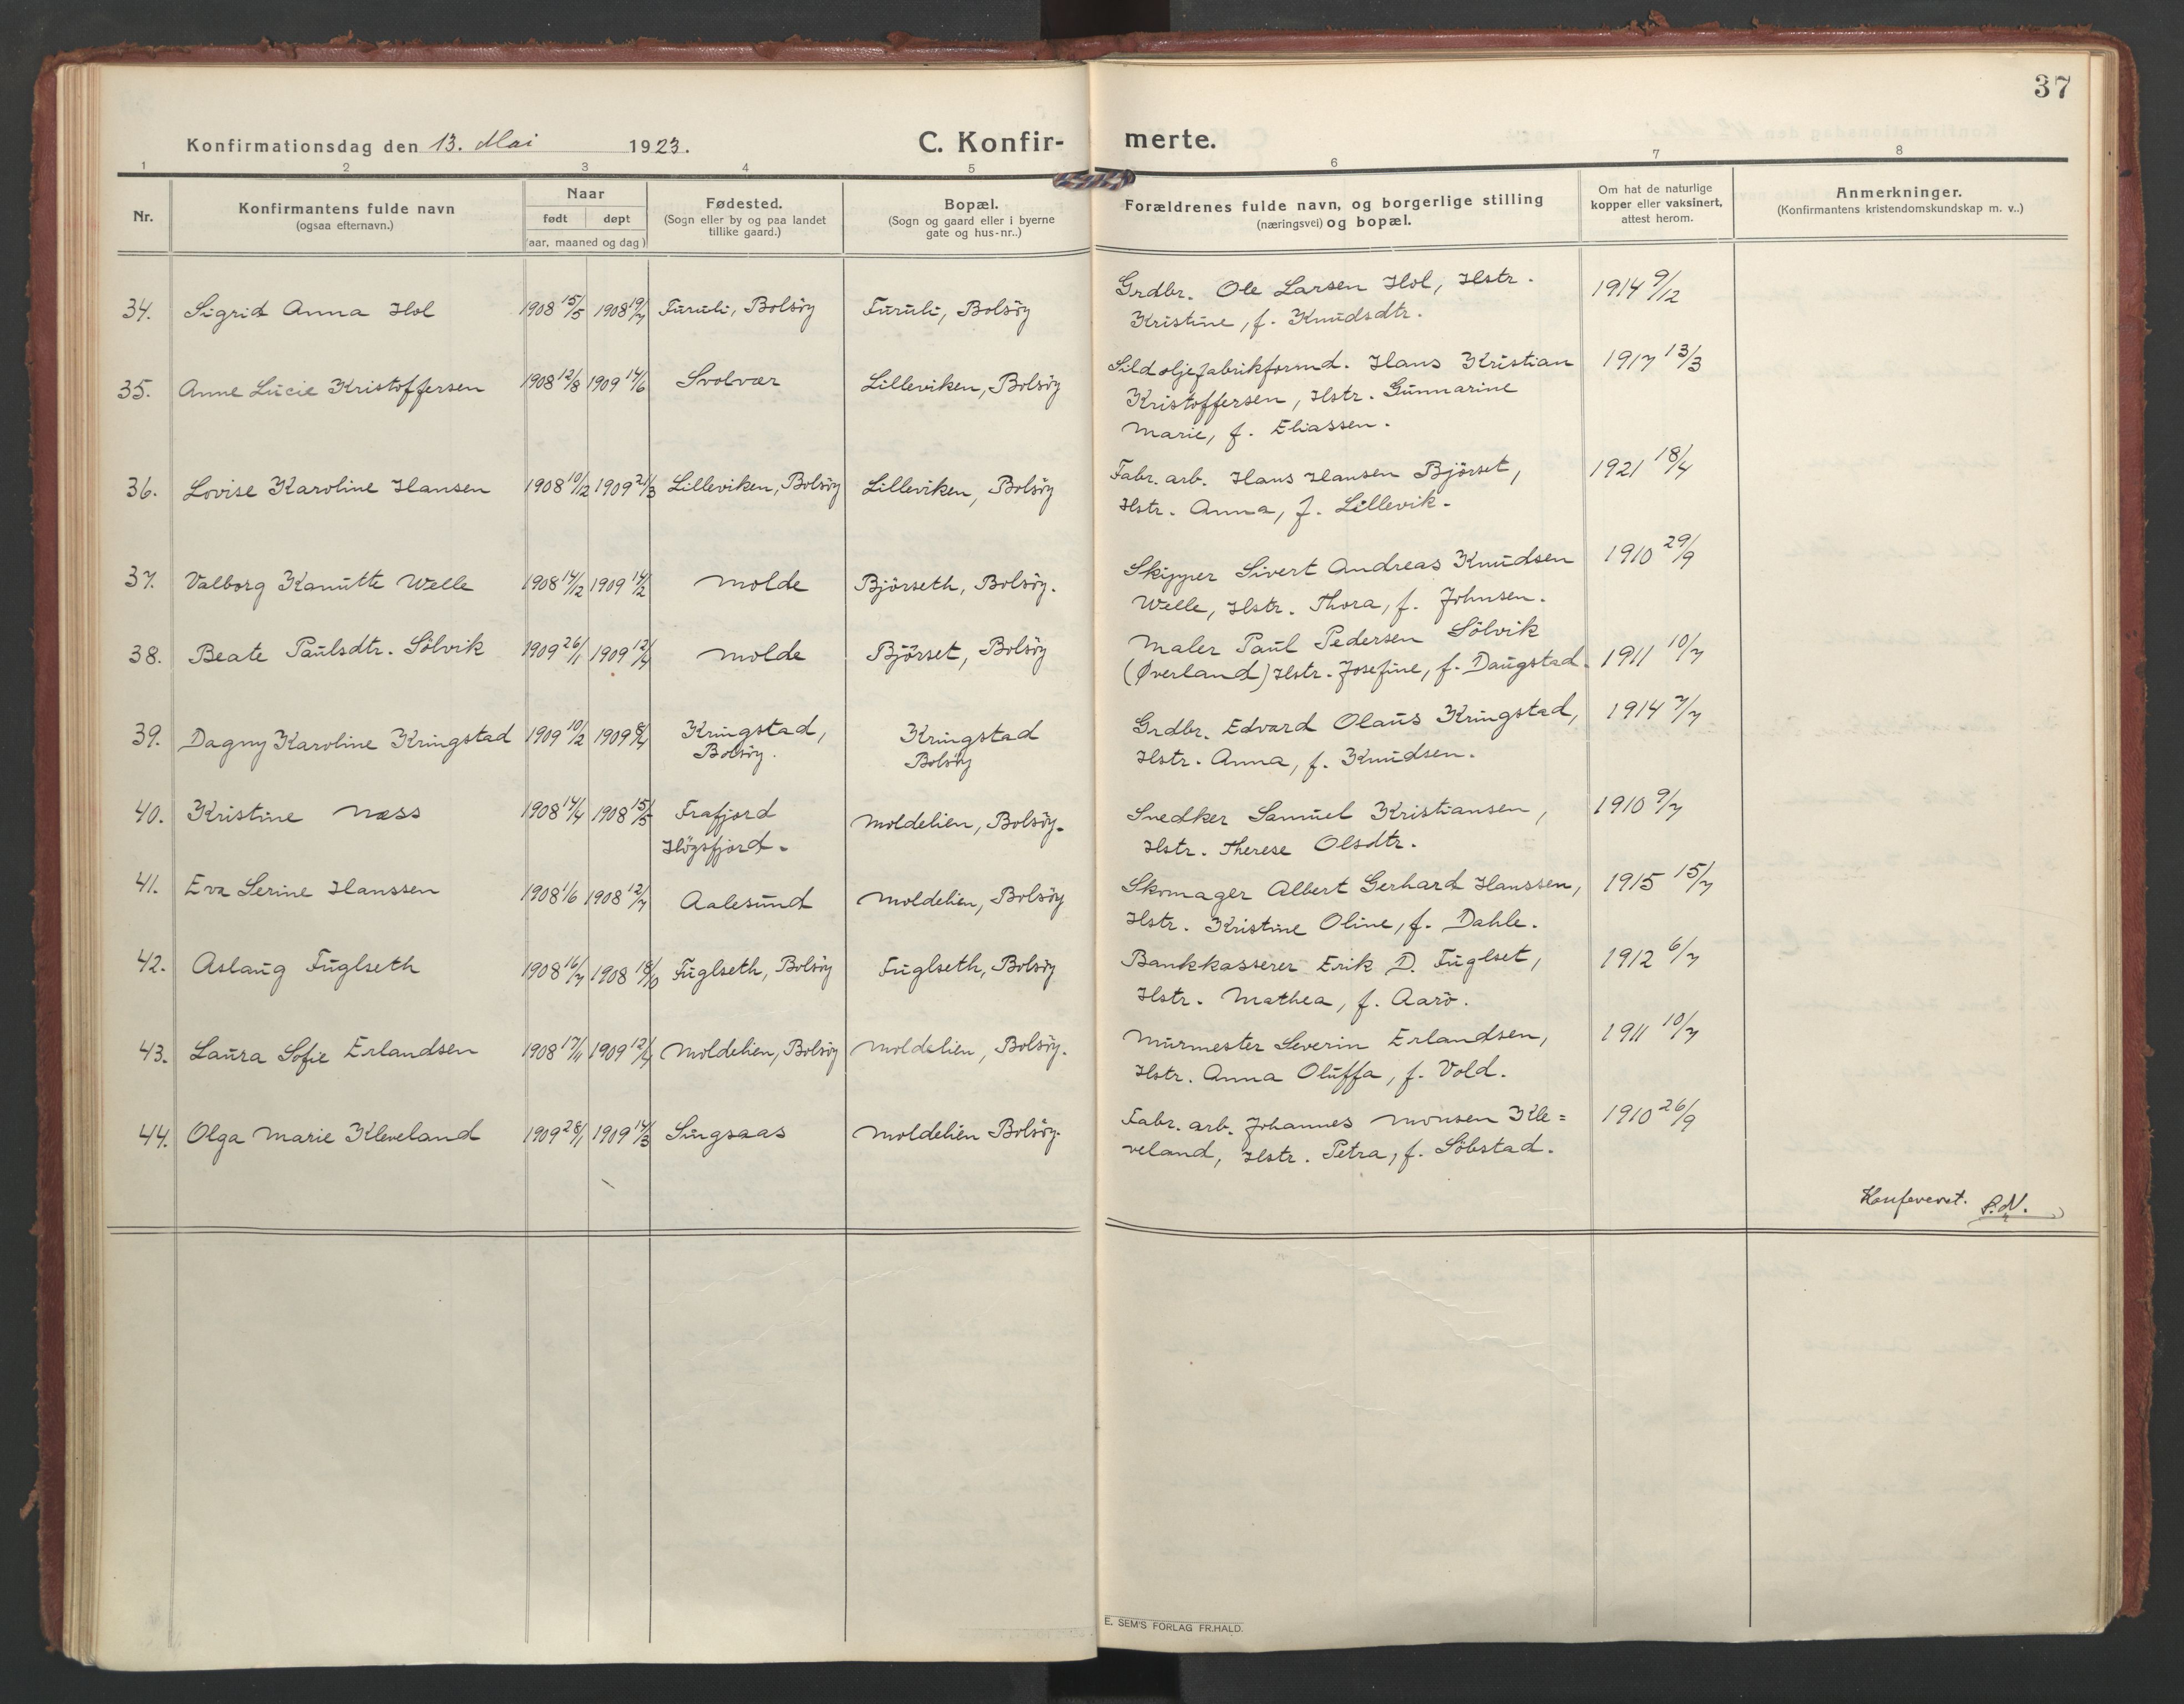 37
Konfirmationsdag den 13. Mai 1923. C. Konfirmerte.
1 2 3 4 5 6 7 8
Nr. Konfirmantens fulde navn (ogsaa efternavn.) Naar født døpt (aar, maaned og dag) Fødested. (Sogn eller by og paa landet tillike gaard.) Bopæl. (Sogn og gaard eller i byerne gate og hus-nr..) Forældrenes fulde navn, og borgerlige stilling (næringsvei) og bopæl. Om hat de naturlige kopper eller vaksinert, attest herom. Anmerkninger. (Konfirmantens kristendomskundskap m. v..)
34. Sigrid Anna Hol 1908 15/5 1908 19/7 Furuli, Bolsöy Furuli, Bolsöy Grdbr. Ole Larsen Hol, Hstr. 1914 9/12
Kristine, f. Knudsdtr.
35. Anne Lucie Kristoffersen 1908 12/8 1909 14/6 Svolvær Lilleviken, Bolsöy Sildoljefabrikformd. Hans Kristian 1917 13/3
Kristoffersen, Hstr. Gunnarine
Marie, f. Eliassen.
36. Lovise Karoline Hansen 1908 10/12 1909 21/3 Lilleviken, Bolsöy Lilleviken, Bolsöy Fabr. arb. Hans Hansen Björset, 1921 18/4
Hstr. Anna, f. Lillevik.
37. Valborg Kanutte Welle 1908 14/12 1909 14/2 Molde Björseth, Bolsöy. Skipper Sivert Andreas Knudsen 1910 29/9
Welle, Hstr. Thora, f. Johnsen.
38. Beate Paulsdtr. Sölvik 1909 26/1 1909 12/4 Molde Björset, Bolsöy Maler Paul Pedersen Sölvik
(Øverland) Hstr. Josefine, f. Daugstad. 1911 10/7
39. Dagny Karoline Kringstad 1909 10/2 1909 8/4 Kringstad, Bolsöy. Kringstad Bolsöy Grdbr. Edvard Olaus Kringstad, 1914 7/7
Hstr. Anna, f. Knudsen.
40. Kristine Næss 1908 14/4 1908 15/5 Frafjord Högsfjord. Moldelien, Bolsöy. Snedker Samuel Kristiansen, 1910 9/7
Hstr. Therese Olsdtr.
41. Eva Serine Hanssen 1908 1/6 1908 12/7 Aalesund Moldelien, Bolsöy Skomager Albert Gerhard Hanssen, 1915 15/7
Hstr. Kristine Oline, f. Dahle.
42. Aslaug Fuglseth 1908 16/7 1908 18/10 Fuglseth, Bolsöy Fuglseth, Bolsöy Bankkasserer Erik D. Fuglset, 1912 6/7
Hstr. Mathea, f. Aarö.
43. Laura Sofie Erlandsen 1908 17/11 1909 12/4 Moldelien, Bolsöy Moldelien, Bolsöy. Murmester Severin Erlandsen, 1911 10/7
Hstr. Anna Oluffa, f. Vold.
44. Olga Marie Kleveland 1909 28/1 1909 14/3 Singsaas Moldelien Bolsöy. Fabr. arb. Johannes Monsen Kle= 1910 26/9
veland, Hstr. Petra, f. Söbstad.
Konfereret.
E. SEM'S FORLAG FR.HALD.